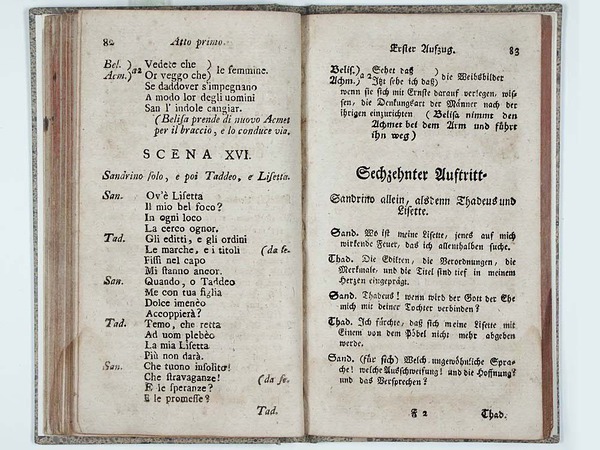 82 Atto primo.
Bel. ) a 2 Vedete che ) le femmine.
Acm.) Or veggo che)
Se daddover s'impegnano
A modo lor degli uomini
San l' indole cangiar.
(Belisa prende di nuovo Acmet
per il braccio, e lo conduce via.
SCENA XVI.
Sandrino solo, e poi Taddeo, e Lisetta.
San. Ov'è Lisetta
Il mio bel foco?
In ogni loco
La cerco ognor.
Tad. Gli editti, e gli ordini
Le marche, e i titoli (da se.
Fissi nel capo
Mi stanno ancor.
San. Quando, o Taddeo
Me con tua figlia
Dolce imenèo
Accoppierà?
Tad. Temo, che retta
Ad uom plebèo
La mia Lisetta
Più non darà.
San. Che tuono insolito!
Che stravaganze! (da se.
E le speranze?
E le promesse?
Tad.
Erster Aufzug. 83
Belis.) a 2 Sehet daß ) die Weibsbilder
Achm.) Itzt sehe ich daß)
wenn sie sich mit Ernste darauf verlegen, wis-
sen, die Denkungsart der Männer nach der
ihrigen einzurichten (Belisa nimmt den
Achmet bei dem Arm und führt
ihn weg)
Sechzehnter Auftritt.
Sandrino allein, alsdenn Thadeus und
Lisette.
Sand. Wo ist meine Lisette, jenes auf mich
wirkende Feuer, das ich allenthalben suche.
Thad. Die Edikten, die Verordnungen, die
Merkmale, und die Titel sind tief in meinem
Herzen eingeprägt.
Sand. Thadeus! wenn wird der Gott der Ehe
mich mit deiner Tochter verbinden?
Thad. Ich fürchte, daß sich meine Lisette mit
Einem von dem Pöbel nicht mehr abgeben
werde.
Sand. (für sich) Welch ungewöhnliche Spra-
che! welche Ausschweifung! und die Hoffnung?
und das Versprechen?
F 2 Thad.